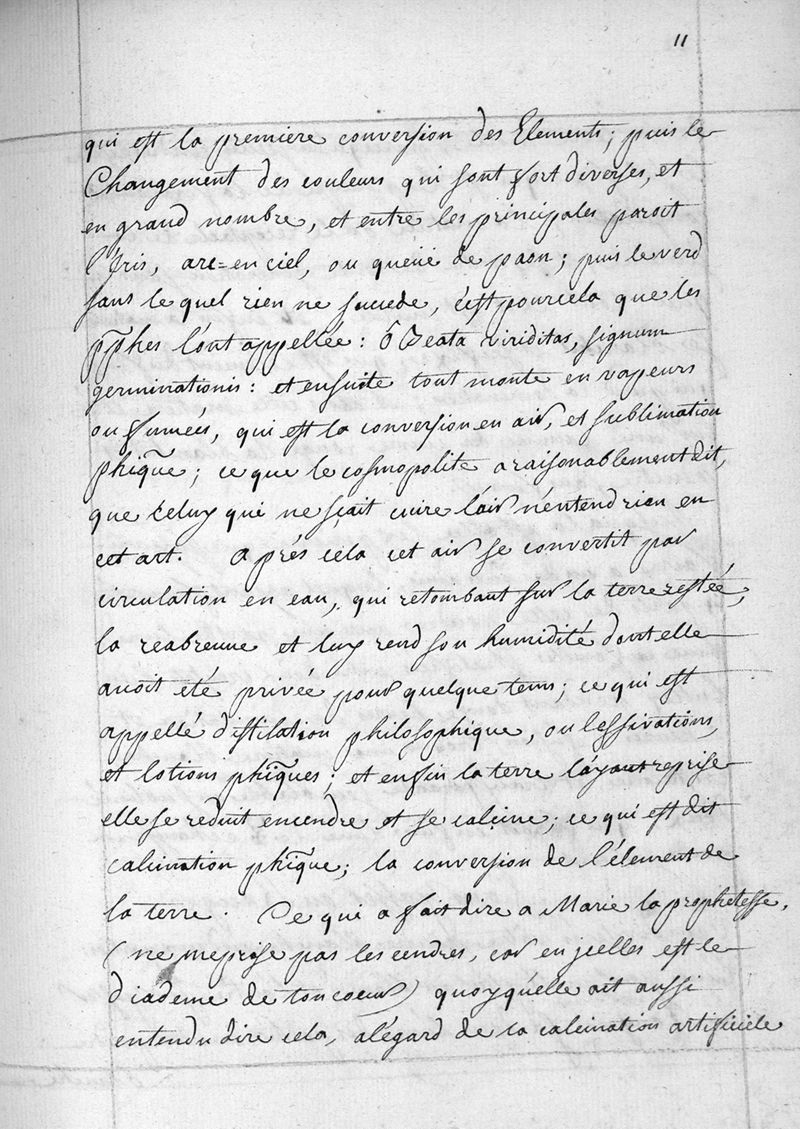 11
qui est la premiere conversion des Elements; puis le
Changement des couleurs qui sont fort diverses, et
en grand nombre, et entre les principales paroit
l'Iris, arc=en ciel, ou queüe de paon; puis le verd
sans le quel rien ne succede, c'est pourcela que les
pp̃hes l'ont appellée: ô Beata viriditas, signum
germinationis: et ensuite tout monte en vapeurs
ou fumées, qui est la conversion en air, et sublimation
phiq̃ue; ce que le cosmopolite a raisonablement dit,
que Celuy qui ne sçait cuire l'air n'entend rien en
cet art. Aprés cela cet air se convertit par
circulation en eau, qui retombant sur la terre restée,
la reabreuue et luy rend son humidité dont elle
auoit été privée pour quelque tems; ce qui est
appellé distilation philosophique, ou lessivations,
et lotions phiq̃ues; et enfin la terre l'ayant reprise
elle se reduit encendre et se calcine; ce qui est dit
calcination phiq̃ue; la conversion de l'élement de
la terre. Ce qui a fait dire a Marie la prophetesse,
(ne meprise pas les cendres, car en jcelles est le
diademe de ton coeur) quoyqu'elle ait aussi
entendu dire cela, alégard de la calcination artificiele